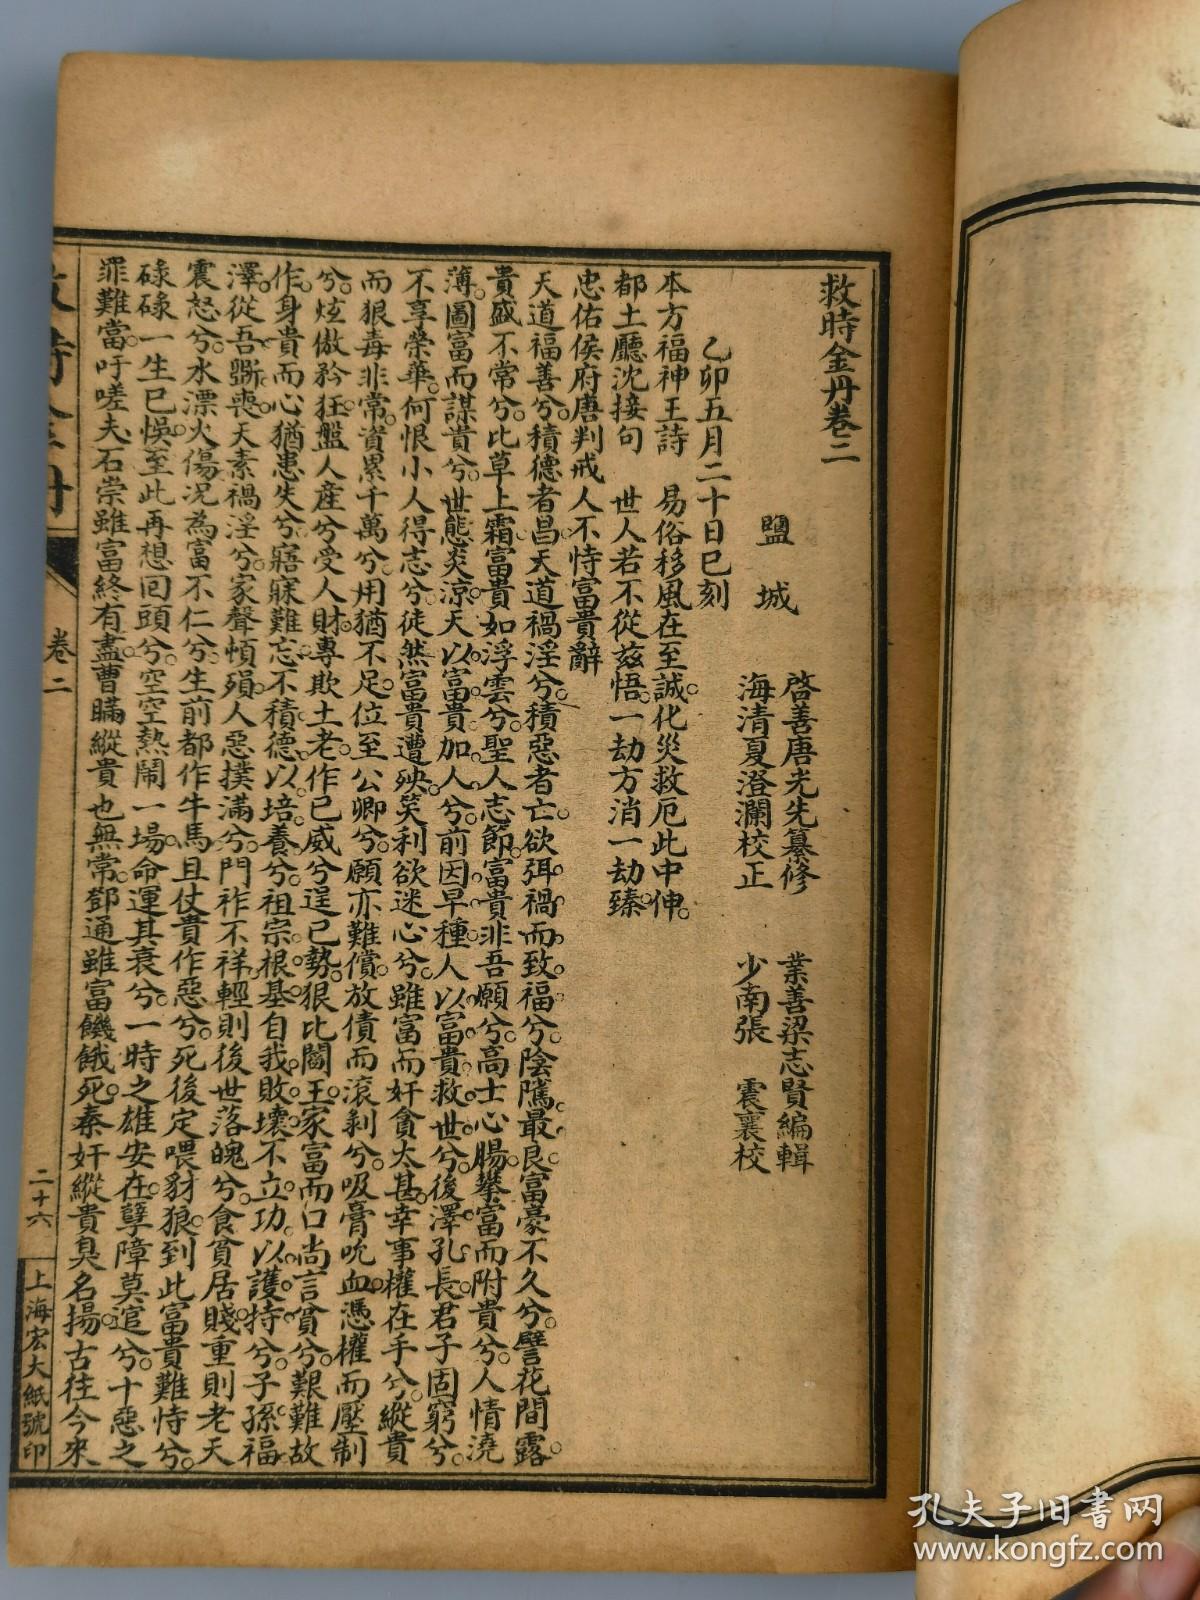 救時金丹卷二
鹽城
啓善唐光先纂修　業善梁志賢編輯
海清夏澄瀾校正　少南張　震襄校
乙卯五月二十日巳刻
本方福神王詩　易俗移風在至誠。化災救厄此中伸。
都土廳沈接句　世人若不從茲悟。一劫方消一劫臻。
忠佑侯府唐判戒人不恃富貴辭
天道福善兮。積德者昌。天道禍淫兮。積惡者亡。欲弭禍而致福兮。陰隲最良。富豪不久兮。譬花間露。
貴盛不常兮。比草上霜。富貴如浮雲兮。聖人志節。富貴非吾願兮。高士心腸。攀富而附貴兮。人情澆
薄。圖富而謀貴兮。世態炎涼。天以富貴加人兮。前因早種。人以富貴救世兮。後澤孔長。君子固窮兮。
不享榮華。何恨小人得志兮。徒然富貴遭殃。笑利欲迷心兮。雖富而奸貪太甚。幸事權在手兮。縱貴
而狠毒非常。資累千萬兮。用猶不足。位至公卿兮。願亦難償。放債而滾剥兮。吸膏吮血。憑權而壓制
兮。炫傲矜狂。盤人産兮受人財。專欺土老。作已威兮逞已勢。狠比閻王。家富而口尚言貧兮。艱難故
作。身貴而心猶患失兮。寤寐難忘。不積德以培養兮。祖宗根基自我敗壞。不立功以護持兮。子孫福
澤。從吾斲喪。天素禍淫兮。家聲傾殞。人惡撲滿兮。門祚不祥。輕則後世落魄兮。食貧居賤。重則老天
震怒兮。水漂火傷。況為富不仁兮。生前都作牛馬。且仗貴作惡兮。死後定喂豺狼。到此富貴難恃兮。
碌碌一生已悞。至此再想回頭兮。空空熱鬧一場。命運其衰兮。一時之雄安在。孽障莫逭兮。十惡之
罪難當。吁嗟夫。石崇雖富終有盡。曹瞞縱貴也無常。鄧通雖富饑餓死。秦奸縱貴臭名揚。古往今來
卷二
二十六
上海宏大紙號印
孔夫子旧書网
www.kongfz.com